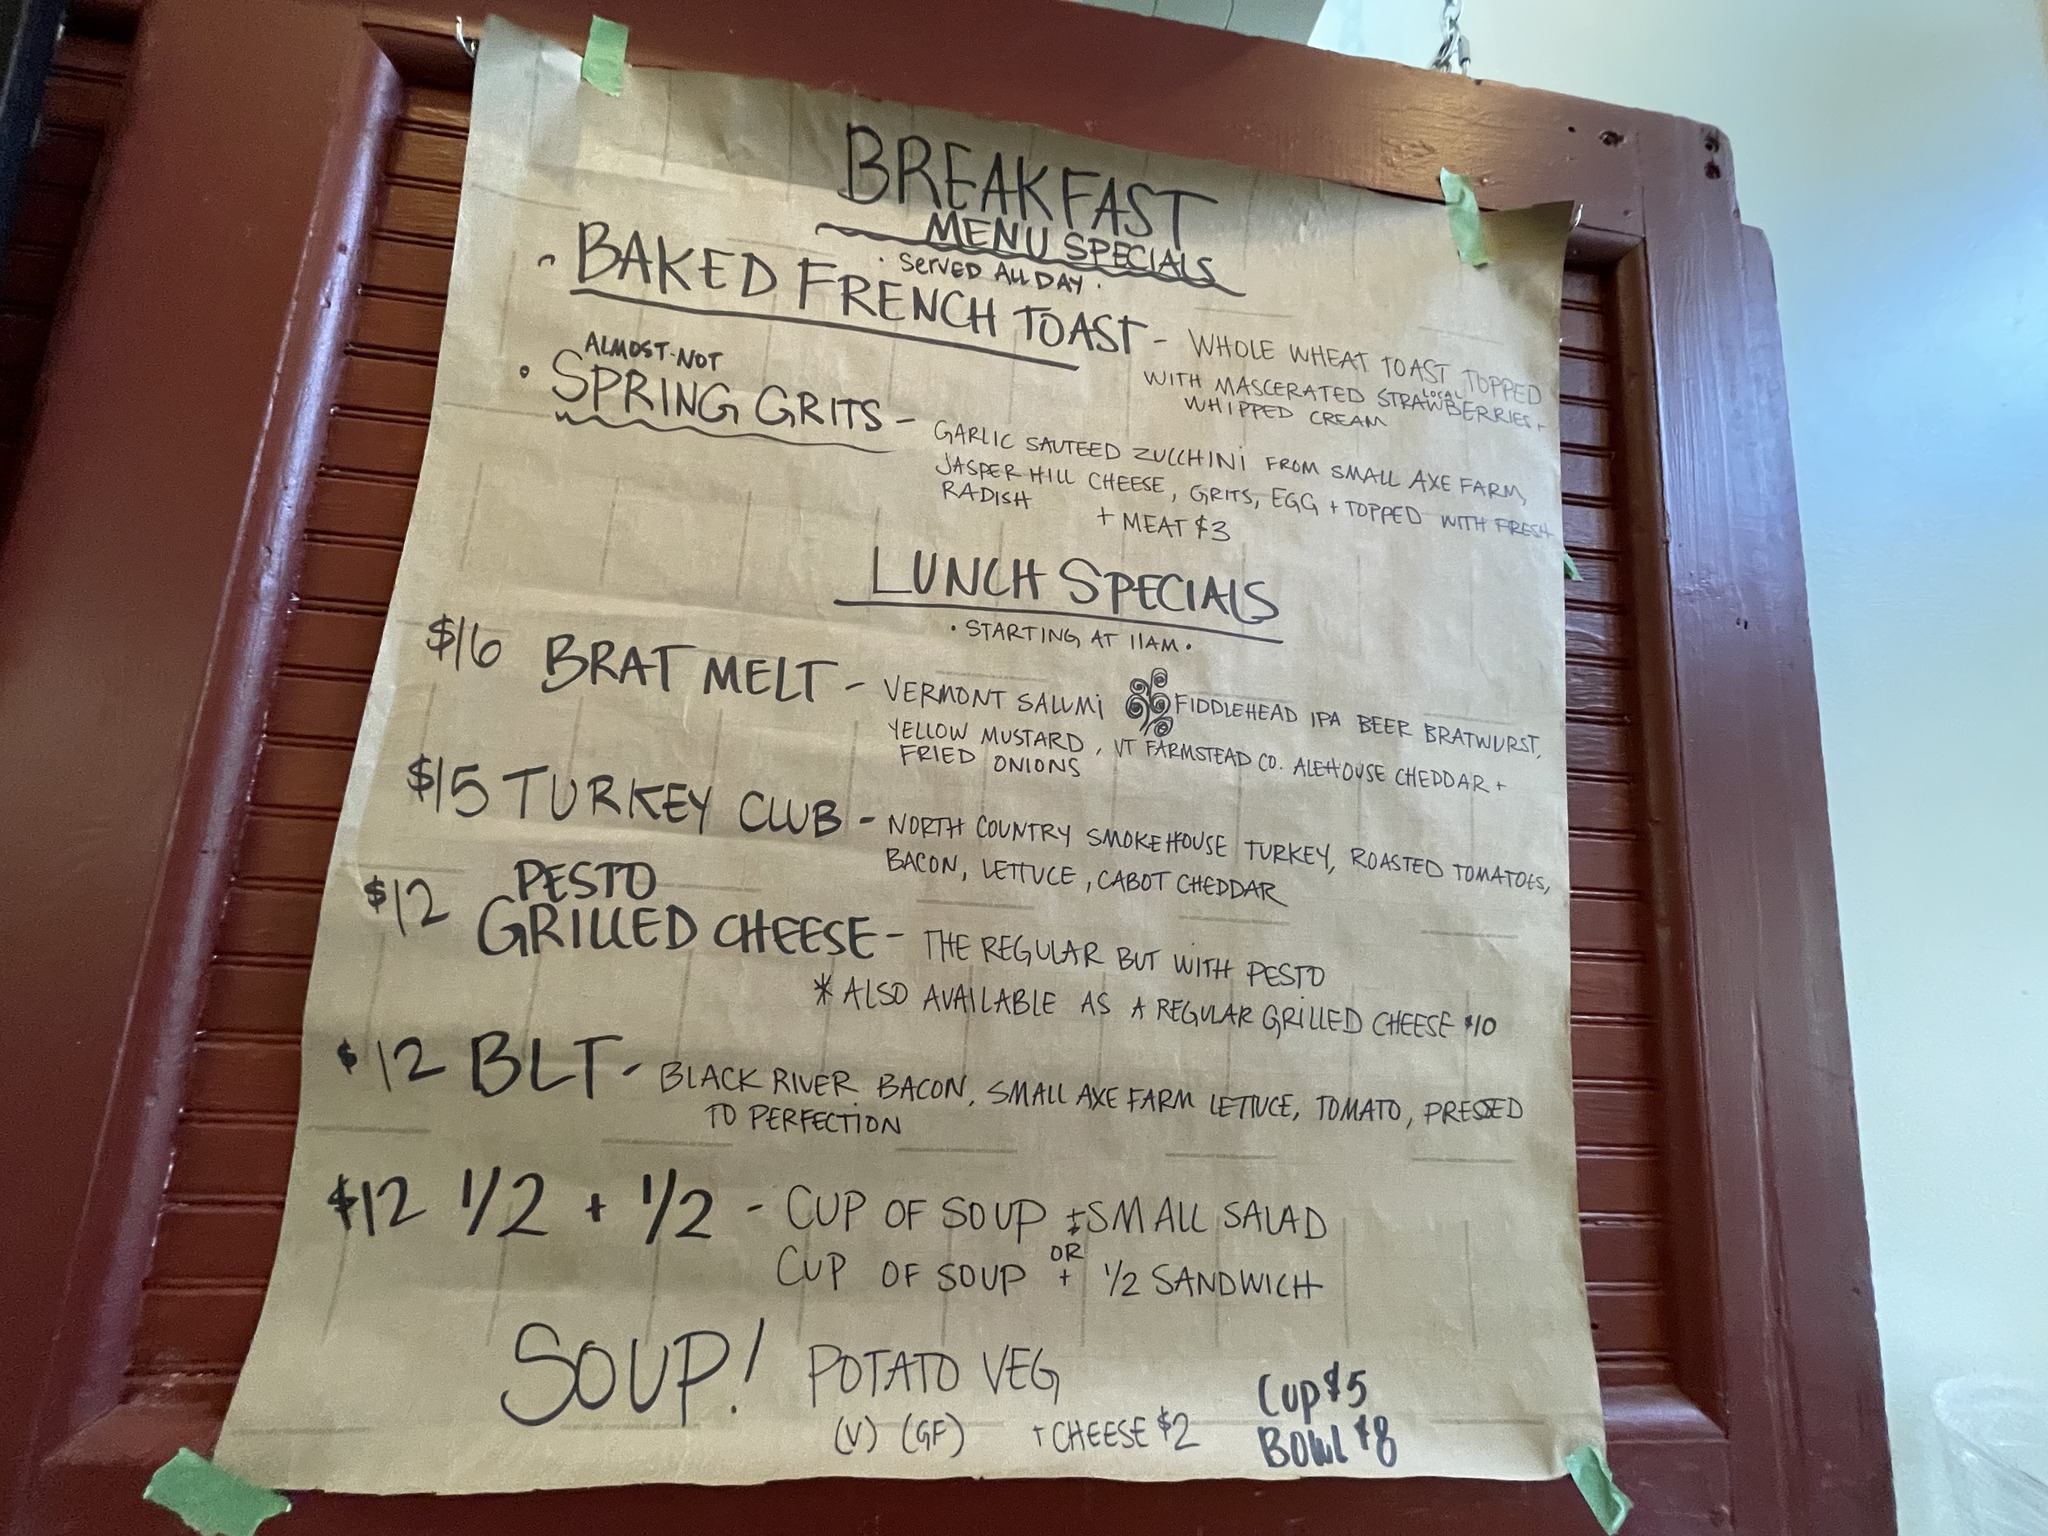 BREAKFAST
MENU SPECIALS
· SERVED ALL DAY ·
· BAKED FRENCH TOAST - WHOLE WHEAT TOAST TOPPED
WITH MASCERATED LOCAL STRAWBERRIES +
WHIPPED CREAM
ALMOST-NOT
· SPRING GRITS - GARLIC SAUTEED ZUCCHINI FROM SMALL AXE FARM,
JASPER HILL CHEESE, GRITS, EGG + TOPPED WITH FRESH
RADISH + MEAT $3
LUNCH SPECIALS
· STARTING AT 11AM ·
$16 BRAT MELT - VERMONT SALUMI FIDDLEHEAD IPA BEER BRATWURST,
YELLOW MUSTARD, VT FARMSTEAD CO. ALEHOUSE CHEDDAR +
FRIED ONIONS
$15 TURKEY CLUB - NORTH COUNTRY SMOKEHOUSE TURKEY, ROASTED TOMATOES,
BACON, LETTUCE, CABOT CHEDDAR
PESTO
$12 GRILLED CHEESE - THE REGULAR BUT WITH PESTO
* ALSO AVAILABLE AS A REGULAR GRILLED CHEESE $10
$12 BLT - BLACK RIVER BACON, SMALL AXE FARM LETTUCE, TOMATO, PRESSED
TO PERFECTION
$12 1/2 + 1/2 - CUP OF SOUP + SMALL SALAD
OR
CUP OF SOUP + 1/2 SANDWICH
SOUP! POTATO VEG
(V) (GF) + CHEESE $2
CUP $5
BOWL $8